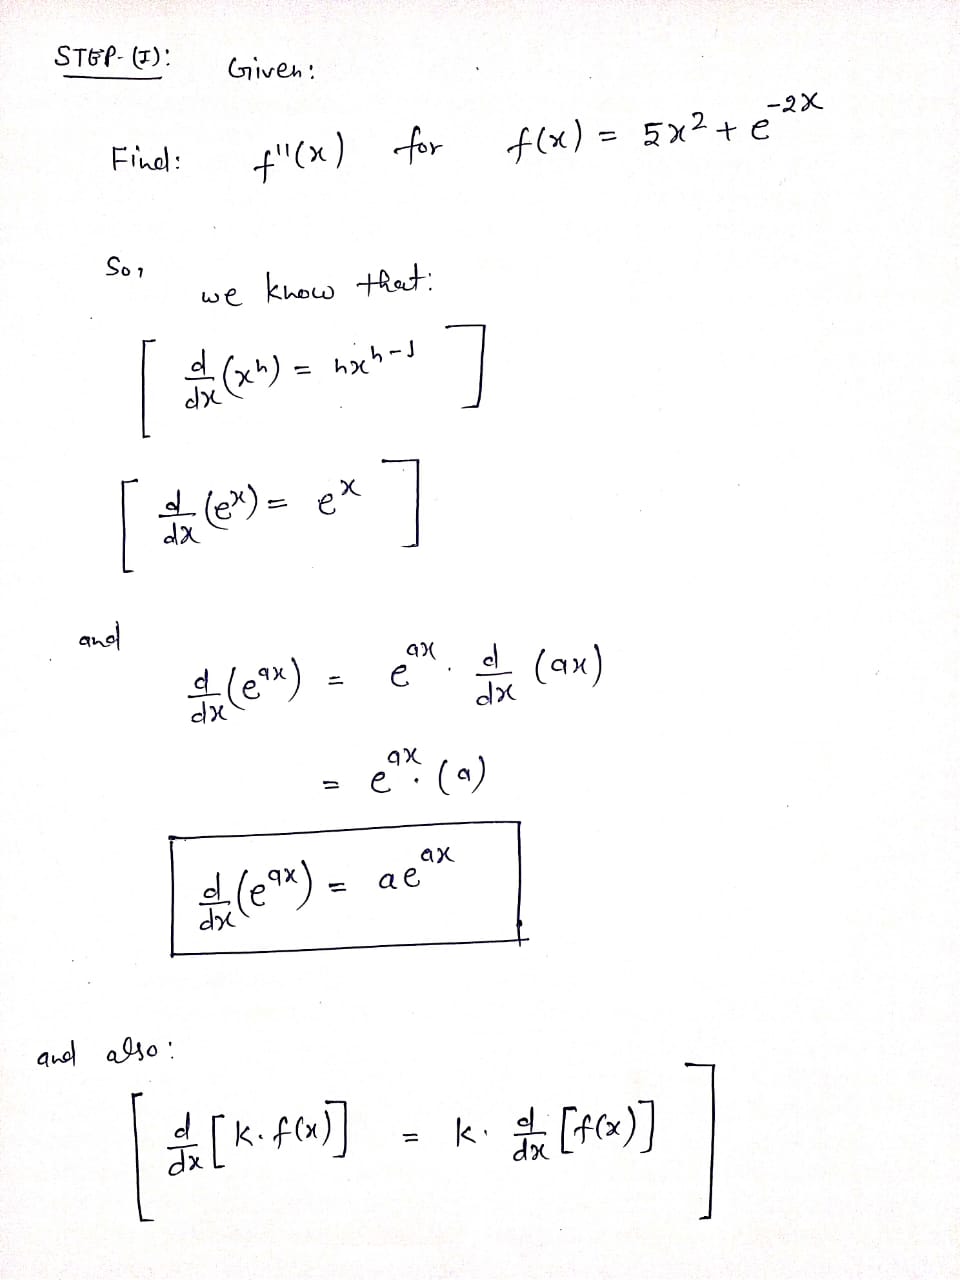 STEP-(I): Given:
Find: f''(x) for f(x) = 5x² + e^{-2x}
So,
we know that:
[ d/dx (xⁿ) = nxⁿ⁻¹ ]
[ d/dx (eˣ) = eˣ ]
and
d/dx (e^{ax}) = e^{ax} · d/dx (ax)
= e^{ax} · (a)
d/dx (e^{ax}) = ae^{ax}
and also:
[ d/dx [k·f(x)] = k· d/dx [f(x)] ]